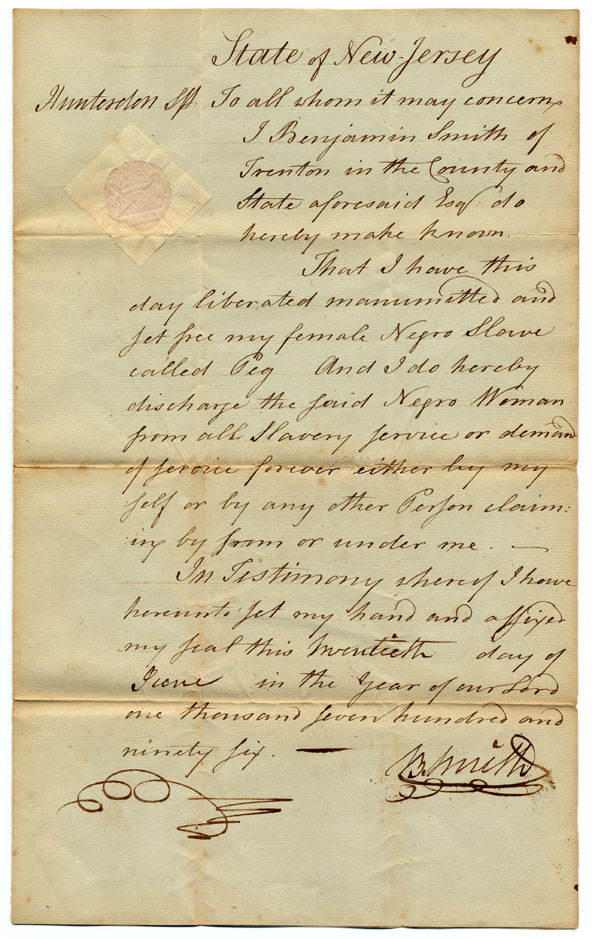 State of New-Jersey
Hunterdon Ss. To all whom it may concern,
I Benjamin Smith of
Trenton in the County and
State aforesaid Esqr. do
hereby make known.
That I have this
day liberated manumitted and
set free my female Negro Slave
called Peg And I do hereby
discharge the said Negro Woman
from all Slavery service or demand
of service forever either by my
self or by any other Person claim:
ing by from or under me. —
In Testimony whereof I have
hereunto set my hand and affixed
my seal this twentieth day of
June in the Year of our Lord
one thousand seven hundred and
ninety six. —
B. Smith